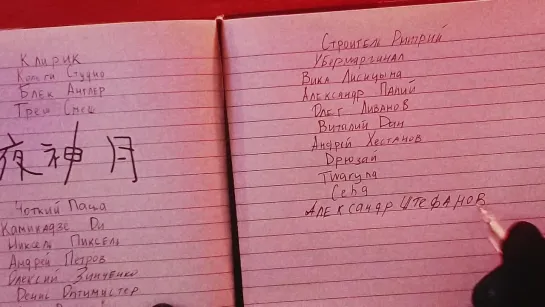 Клирик
Кологи Студио
Блек Англер
Треш Спец
夜神月
Чоткий Паца
Камикадзе Ди
Никель Пиксель
Андрей Петров
Олексий Зинченко
Денис Оптимистер
Строитель Рытрий
Убермаргинал
Вика Лисицына
Александр Палий
Олег Ливанов
Виталий Дын
Андрей Хестанов
Дрюзай
Twaryna
Сева
Александр Штефанов